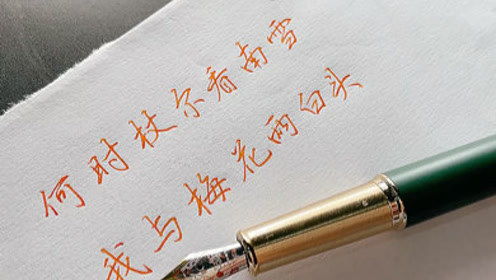 何时杖尔看南雪
我与梅花两白头